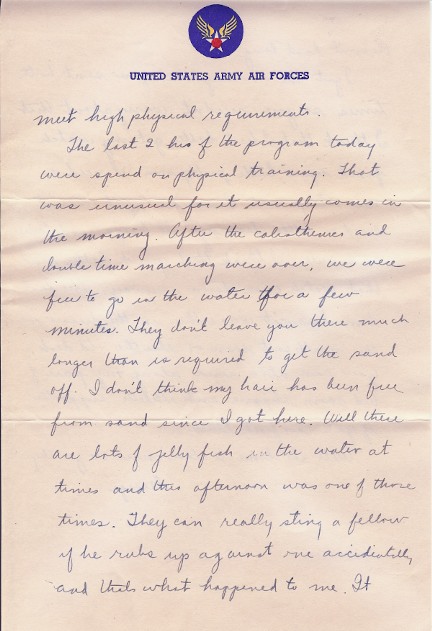 UNITED STATES ARMY AIR FORCES
meet high physical requirements.
The last 2 hrs of the program today
were spend on physical training. That
was unusual for it usually comes in
the morning. After the calesthenics and
double time marching were over, we were
free to go in the water for a few
minutes. They don't leave you there much
longer than is required to get the sand
off. I don't think my hair has been free
from sand since I got here. Well there
are lots of jelly fish in the water at
times and this afternoon was one of those
times. They can really sting a fellow
if he rubs up against one accidentally
and thats what happened to me. It